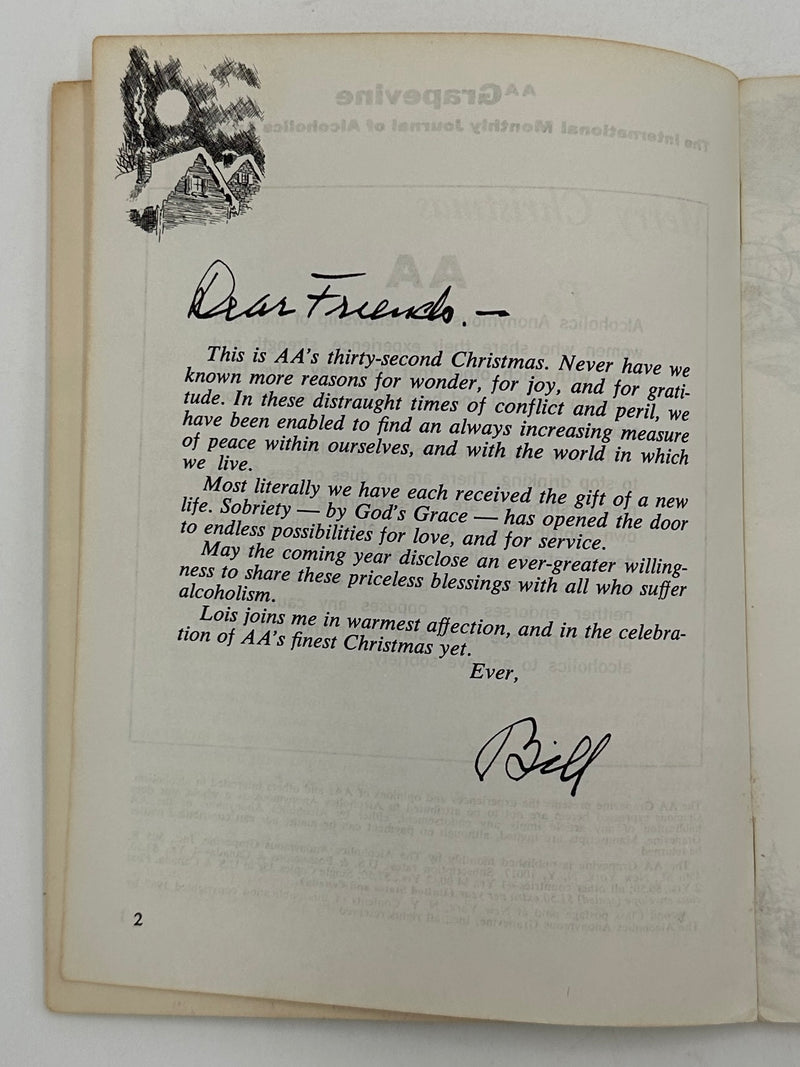 Dear Friends.—
This is AA's thirty-second Christmas. Never have we
known more reasons for wonder, for joy, and for grati-
tude. In these distraught times of conflict and peril, we
have been enabled to find an always increasing measure
of peace within ourselves, and with the world in which
we live.
Most literally we have each received the gift of a new
life. Sobriety — by God's Grace — has opened the door
to endless possibilities for love, and for service.
May the coming year disclose an ever-greater willing-
ness to share these priceless blessings with all who suffer
alcoholism.
Lois joins me in warmest affection, and in the celebra-
tion of AA's finest Christmas yet.
Ever,
Bill
2